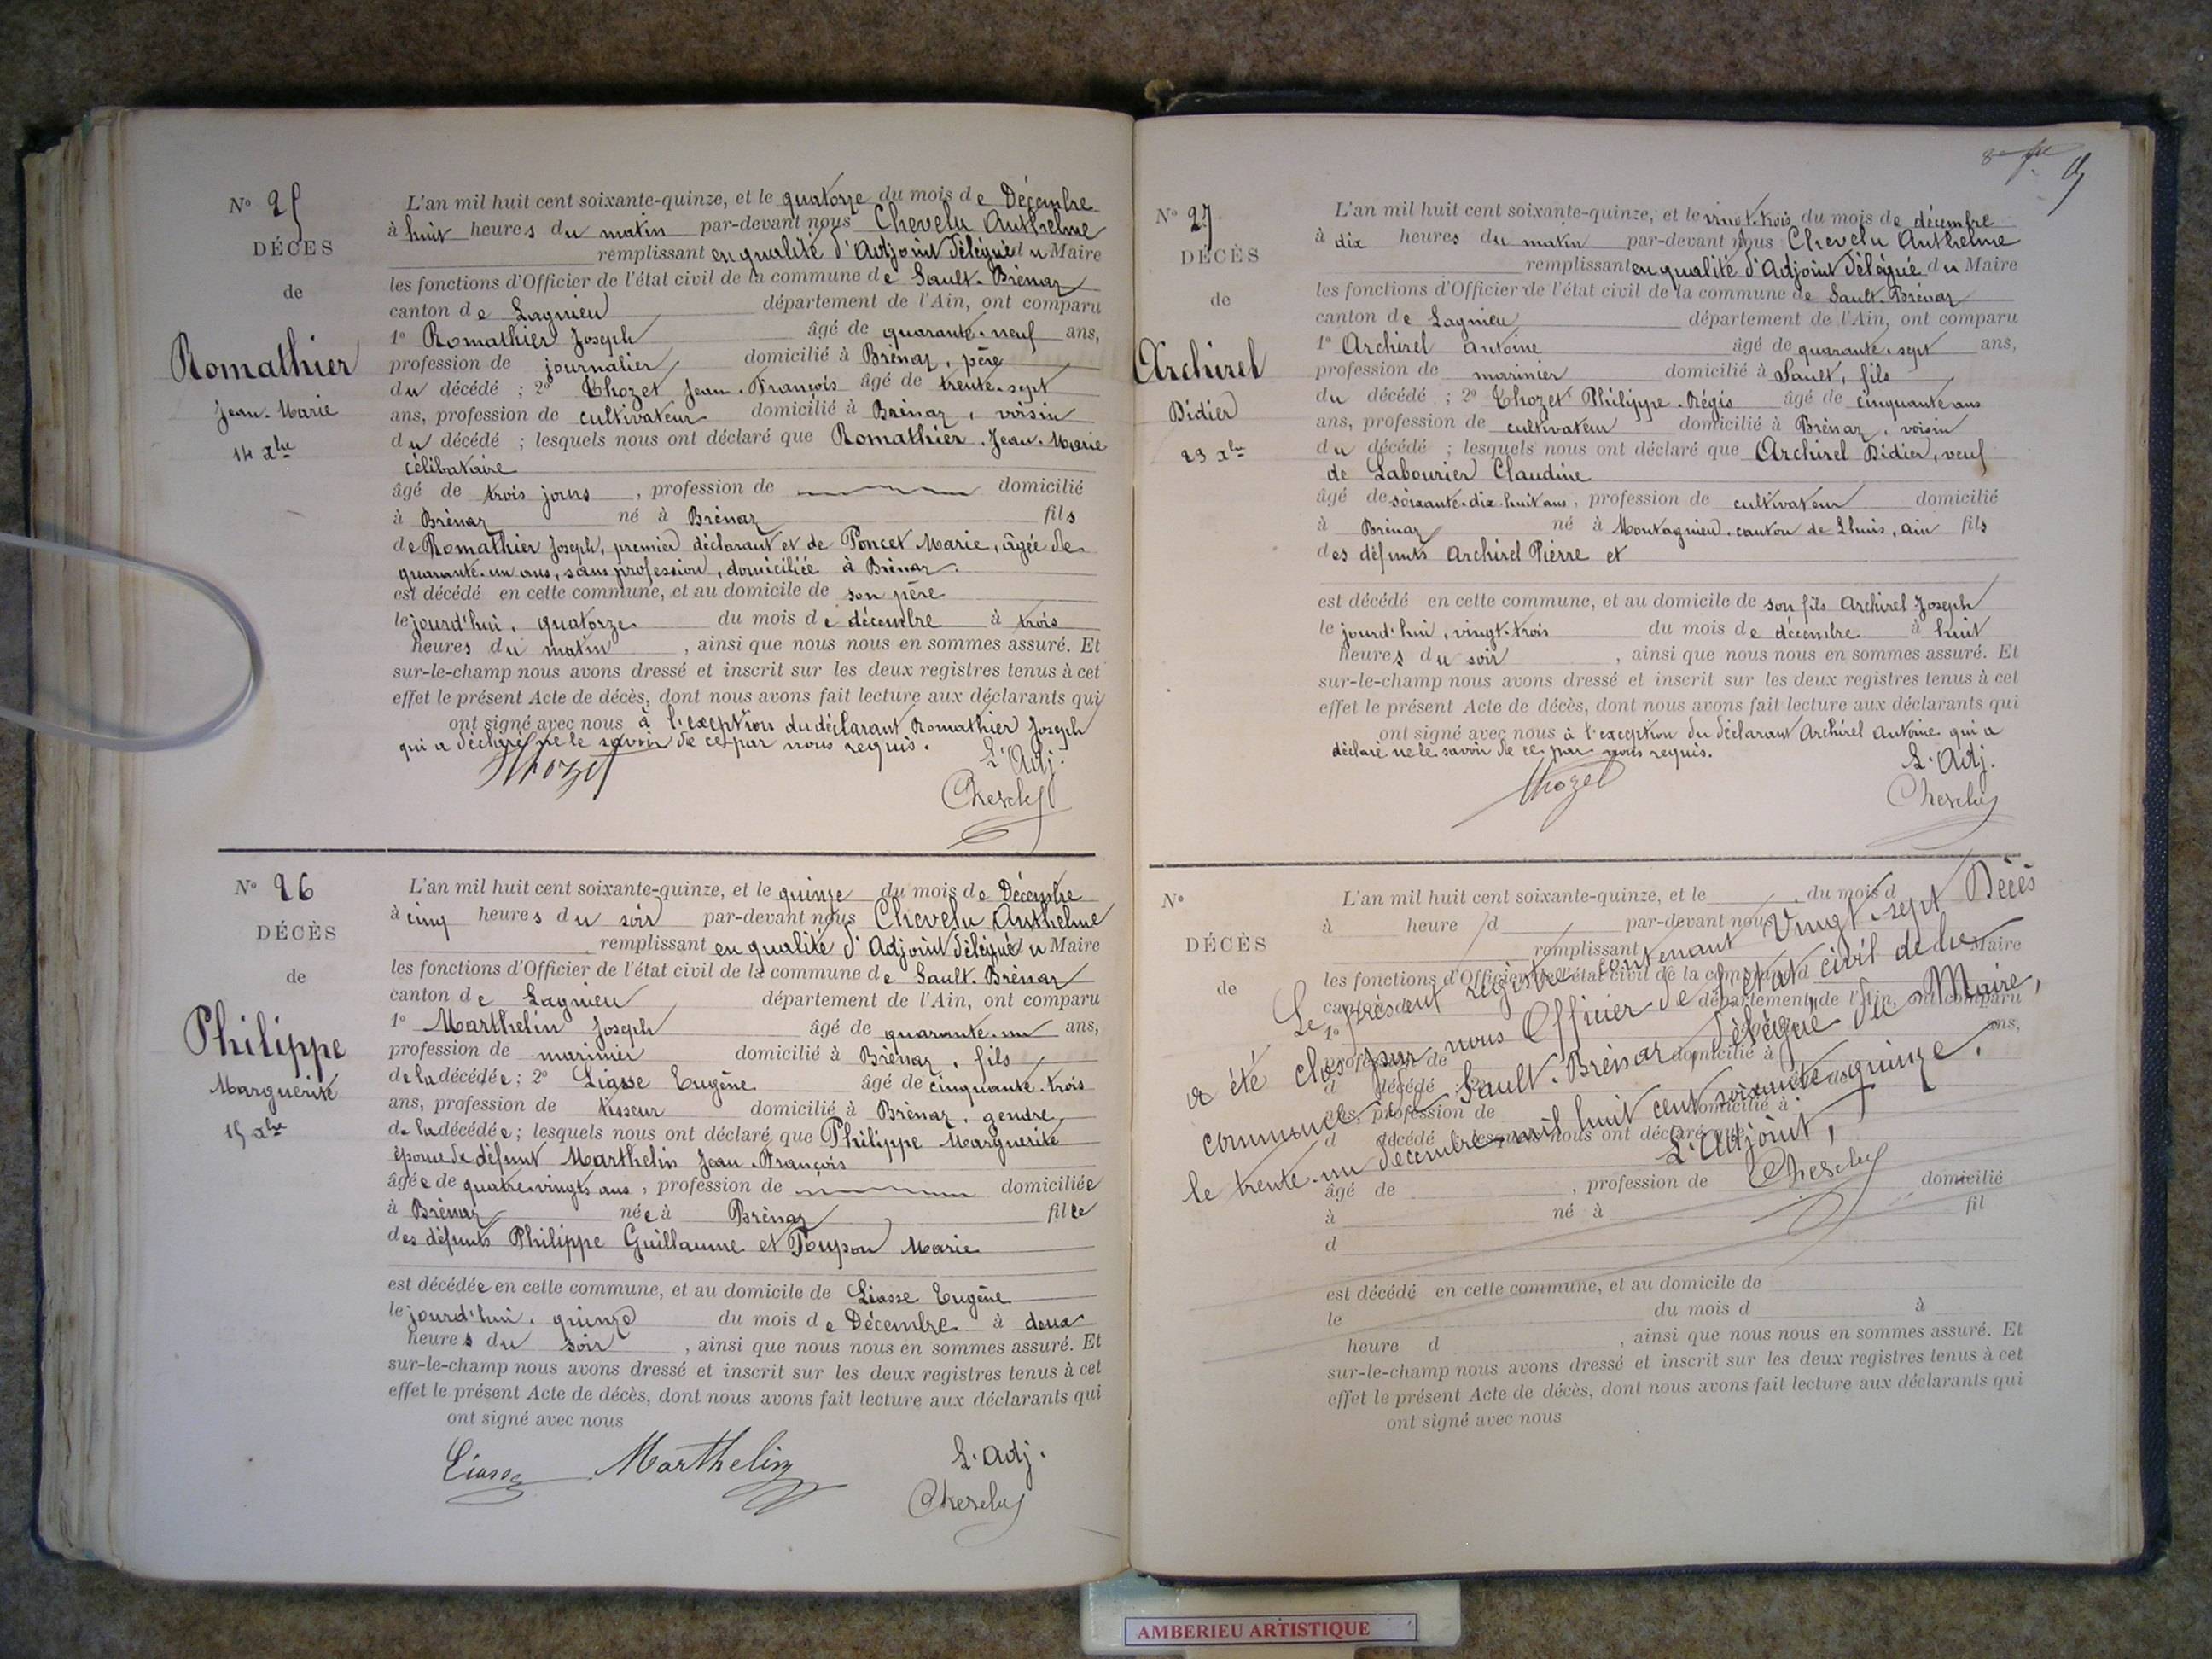 N° 25
DÉCÈS
de
Romathier
Jean-Marie
14 xbre
L'an mil huit cent soixante-quinze, et le quatorze du mois de Décembre
à huit heures du matin par-devant nous Chevelu Anthelme
remplissant en qualité d'Adjoint délégué du Maire
les fonctions d'Officier de l'état civil de la commune de Sault-Brénaz
canton de Lagnieu département de l'Ain, ont comparu
1° Romathier Joseph âgé de quarante-neuf ans,
profession de journalier domicilié à Brénaz, père
du décédé ; 2° Thozet Jean-François âgé de trente-sept
ans, profession de cultivateur domicilié à Brénaz, voisin
du décédé ; lesquels nous ont déclaré que Romathier Jean-Marie
célibataire
âgé de trois jours, profession de domicilié
à Brénaz né à Brénaz fils
de Romathier Joseph, premier déclarant et de Poncet Marie, âgée de
quarante-un ans, sans profession, domiciliée à Brénaz.
est décédé en cette commune, et au domicile de son père
le jourd'hui, quatorze du mois de décembre à trois
heures du matin, ainsi que nous nous en sommes assuré. Et
sur-le-champ nous avons dressé et inscrit sur les deux registres tenus à cet
effet le présent Acte de décès, dont nous avons fait lecture aux déclarants qui
ont signé avec nous à l'exception du déclarant Romathier Joseph
qui a déclaré ne le savoir de ce par nous requis.
Thozet
L'Adj.
Chevelu
N° 26
DÉCÈS
de
Philippe
Marguerite
15 xbre
L'an mil huit cent soixante-quinze, et le quinze du mois de Décembre
à cinq heures du soir par-devant nous Chevelu Anthelme
remplissant en qualité d'Adjoint délégué du Maire
les fonctions d'Officier de l'état civil de la commune de Sault-Brénaz
canton de Lagnieu département de l'Ain, ont comparu
1° Marthelin Joseph âgé de quarante-un ans,
profession de marinier domicilié à Brénaz, fils
de la décédée ; 2° Liasse Eugène âgé de cinquante-trois
ans, profession de tisseur domicilié à Brénaz, gendre,
de la décédée ; lesquels nous ont déclaré que Philippe Marguerite
épouse de défunt Marthelin Jean-François
âgée de quatre-vingts ans, profession de domiciliée
à Brénaz née à Brénaz fille
des défunts Philippe Guillaume et Poupon Marie
est décédée en cette commune, et au domicile de Liasse Eugène
le jourd'hui, quinze du mois de Décembre à deux
heures du soir, ainsi que nous nous en sommes assuré. Et
sur-le-champ nous avons dressé et inscrit sur les deux registres tenus à cet
effet le présent Acte de décès, dont nous avons fait lecture aux déclarants qui
ont signé avec nous
Liasse Marthelin
L'Adj.
Chevelu
N° 27
DÉCÈS
de
Archirel
Didier
23 xbre
L'an mil huit cent soixante-quinze, et le vingt-trois du mois de décembre
à dix heures du matin par-devant nous Chevelu Anthelme
remplissant en qualité d'Adjoint délégué du Maire
les fonctions d'Officier de l'état civil de la commune de Sault-Brénaz
canton de Lagnieu département de l'Ain, ont comparu
1° Archirel Antoine âgé de quarante-sept ans,
profession de marinier domicilié à Sault, fils
du décédé ; 2° Thozet Philippe-Régis âgé de cinquante ans
ans, profession de cultivateur domicilié à Brénaz, voisin
du décédé ; lesquels nous ont déclaré que Archirel Didier, veuf
de Labourier Claudine
âgé de soixante-dix-huit ans, profession de cultivateur domicilié
à Brénaz né à Montagnieu, canton de Lhuis, Ain fils
des défunts Archirel Pierre et
est décédé en cette commune, et au domicile de son fils Archirel Joseph
le jourd'hui, vingt-trois du mois de décembre à huit
heures du soir, ainsi que nous nous en sommes assuré. Et
sur-le-champ nous avons dressé et inscrit sur les deux registres tenus à cet
effet le présent Acte de décès, dont nous avons fait lecture aux déclarants qui
ont signé avec nous à l'exception du déclarant Archirel Antoine qui a
déclaré ne le savoir de ce par nous requis.
Thozet
L'Adj.
Chevelu
N°
DÉCÈS
de
L'an mil huit cent soixante-quinze, et le du mois d
à heure d par-devant nous
remplissant Maire
les fonctions d'Officier de l'état civil de la commune d
canton d département de l'Ain, ont comparu
1° ans,
profession de domicilié à
d décédé ; 2° âgé de
ans, profession de domicilié à
d décédé ; lesquels nous ont déclaré que
âgé de , profession de domicilié
à né à fil
d
est décédé en cette commune, et au domicile de
le du mois d à
heure d , ainsi que nous nous en sommes assuré. Et
sur-le-champ nous avons dressé et inscrit sur les deux registres tenus à cet
effet le présent Acte de décès, dont nous avons fait lecture aux déclarants qui
ont signé avec nous
Le présent registre contenant Vingt-sept Décès
a été clos par nous Officier de l'état civil de la
commune de Sault-Brénaz, délégué du Maire,
le trente-un décembre mil huit cent soixante-quinze.
L'Adjoint,
Chevelu
AMBERIEU ARTISTIQUE